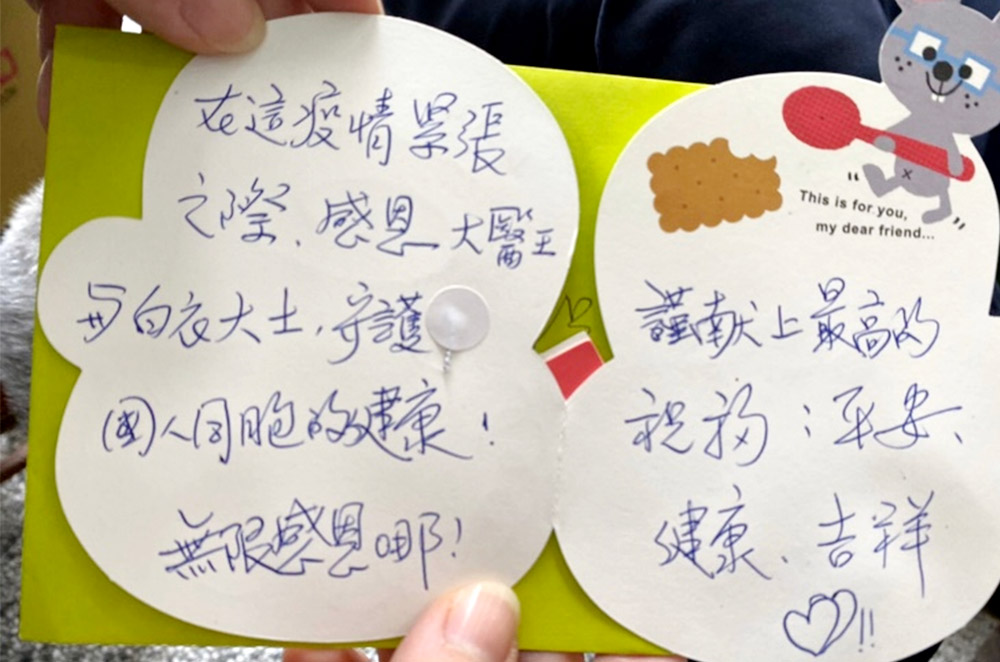 在這疫情緊張
之際、感恩大醫王
与白衣大士,守護
國人同胞的健康!
無限感恩哪!
"This is for you,
my dear friend..."
謹献上最高的
祝福:平安、
健康、吉祥
!!